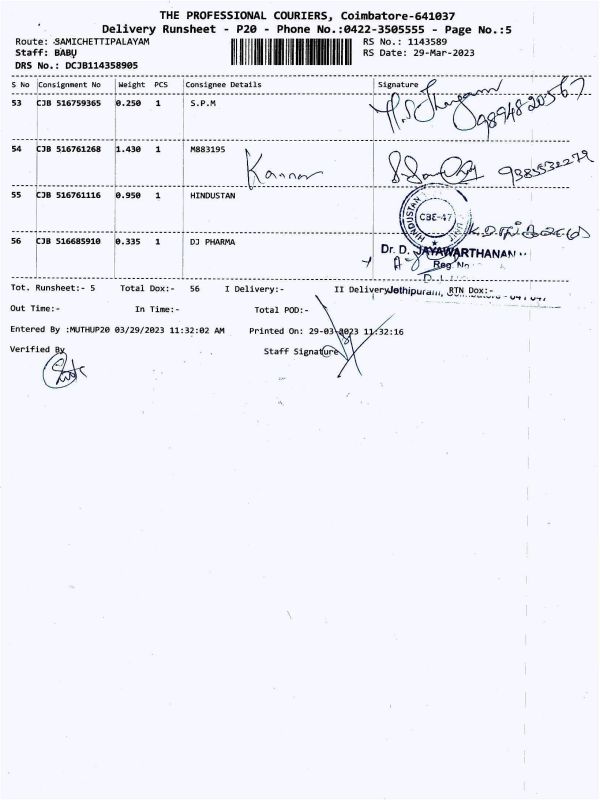 THE PROFESSIONAL COURIERS, Coimbatore-641037
Delivery Runsheet - P20 - Phone No.:0422-3505555 - Page No.:5
Route: SAMICHETTIPALAYAM RS No.: 1143589
Staff: BABU RS Date: 29-Mar-2023
DRS No.: DCJB114358905
S No Consignment No Weight PCS Consignee Details Signature
53 CJB 516759365 0.250 1 S.P.M
9894820567
54 CJB 516761268 1.430 1 M883195
Kannan 9385532279
55 CJB 516761116 0.950 1 HINDUSTAN
HINDUSTAN CBE-47
56 CJB 516685910 0.335 1 DJ PHARMA
Dr. D. JAYAWARTHANAN
Reg. No
Tot. Runsheet:- 5 Total Dox:- 56 I Delivery:- II Delivery RTN Dox:-
Out Time:- In Time:- Total POD:-
Entered By :MUTHUP20 03/29/2023 11:32:02 AM Printed On: 29-03-2023 11:32:16
Verified By Staff Signature